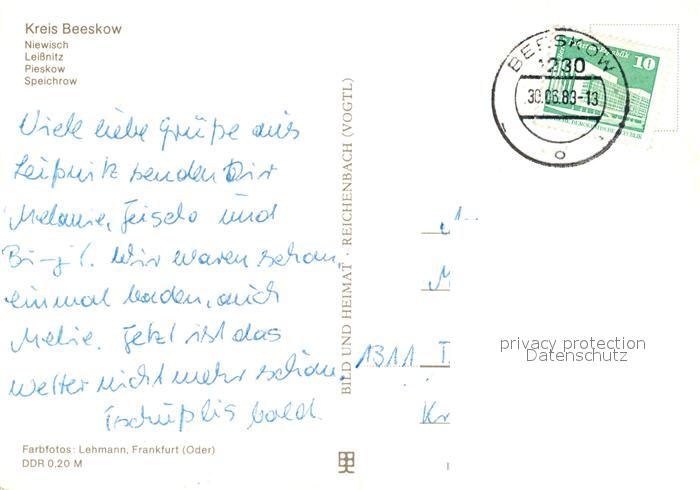 Kreis Beeskow
Niewisch
Leißnitz
Pieskow
Speichrow
BEESKOW
1230
30.06.83-13
10
Viele liebe Grüße aus
Leißnitz senden Dir
Melanie, Gisela und
Wir waren schon
einmal baden, auch
Melie. Jetzt ist das
Wetter nicht mehr schön.
Tschüß bis bald.
BILD UND HEIMAT · REICHENBACH (VOGTL)
1311
Kr
privacy protection
Datenschutz
Farbfotos: Lehmann, Frankfurt (Oder)
DDR 0,20 M